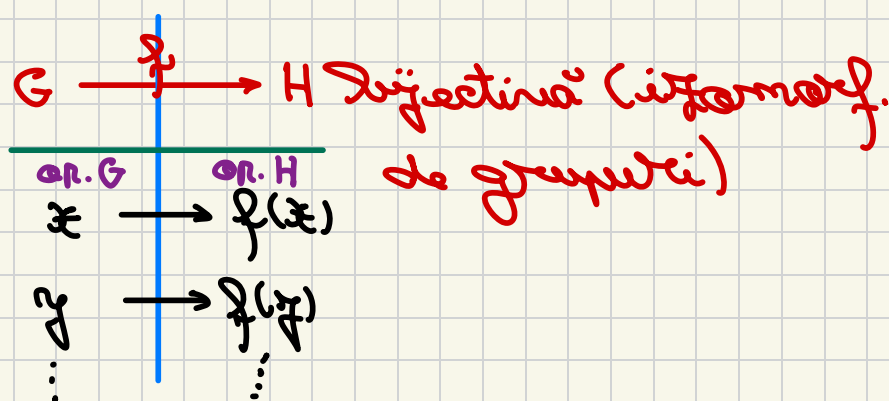 G f→ H bijectivă (izomorf.
de grupuri)
or. G or. H
x → f(x)
y → f(y)
⋮ ⋮